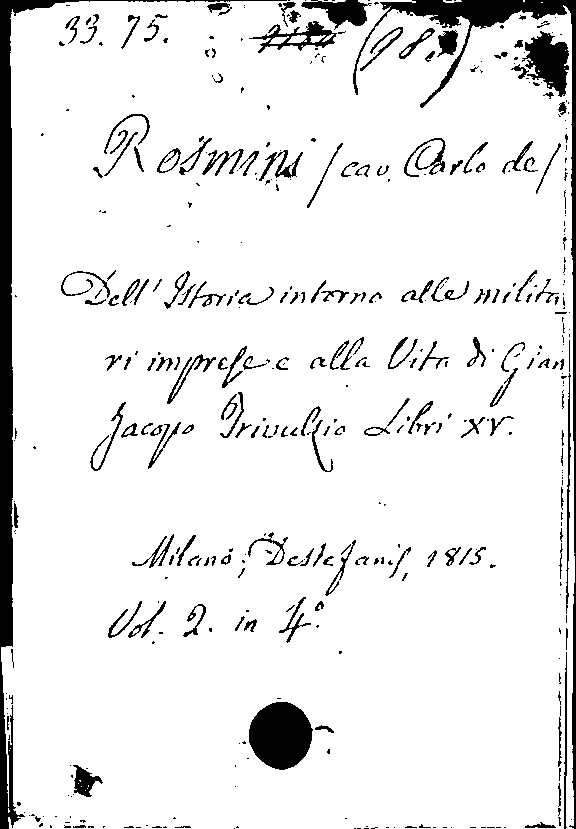 33. 75. (98.)
Rosmini / cav. Carlo de /
Dell' Istoria intorno alle milita
ri imprese e alla Vita di Gian
Jacopo Trivulzio Libri XV.
Milano, Destefanis, 1815.
Vol. 2. in 4.º